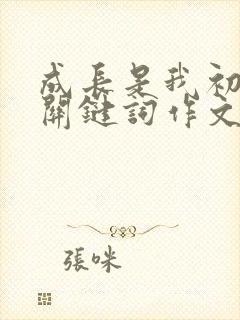 成長是我初
關鍵詞作文
張咪